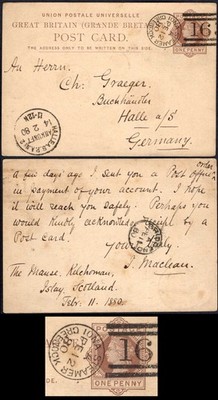 UNION POSTALE UNIVERSELLE
GREAT BRITAIN (GRANDE BRETAGNE)
POST CARD.
THE ADDRESS ONLY TO BE WRITTEN ON THIS SIDE.
16
An Herrn
Ch: Graeger.
Buchhändler
Halle a/S
Germany.
14 2 80
order
"A few days ago I sent you a Post Office
in payment of your account. I hope
it will reach you safely. Perhaps you
would kindly acknowledge receipt by a
Post Card.
Yours truly
J. Maclean.
The Manse, Kilchoman,
Islay, Scotland.
Feb: 11. 1880.
STEAMER
16
ONE PENNY